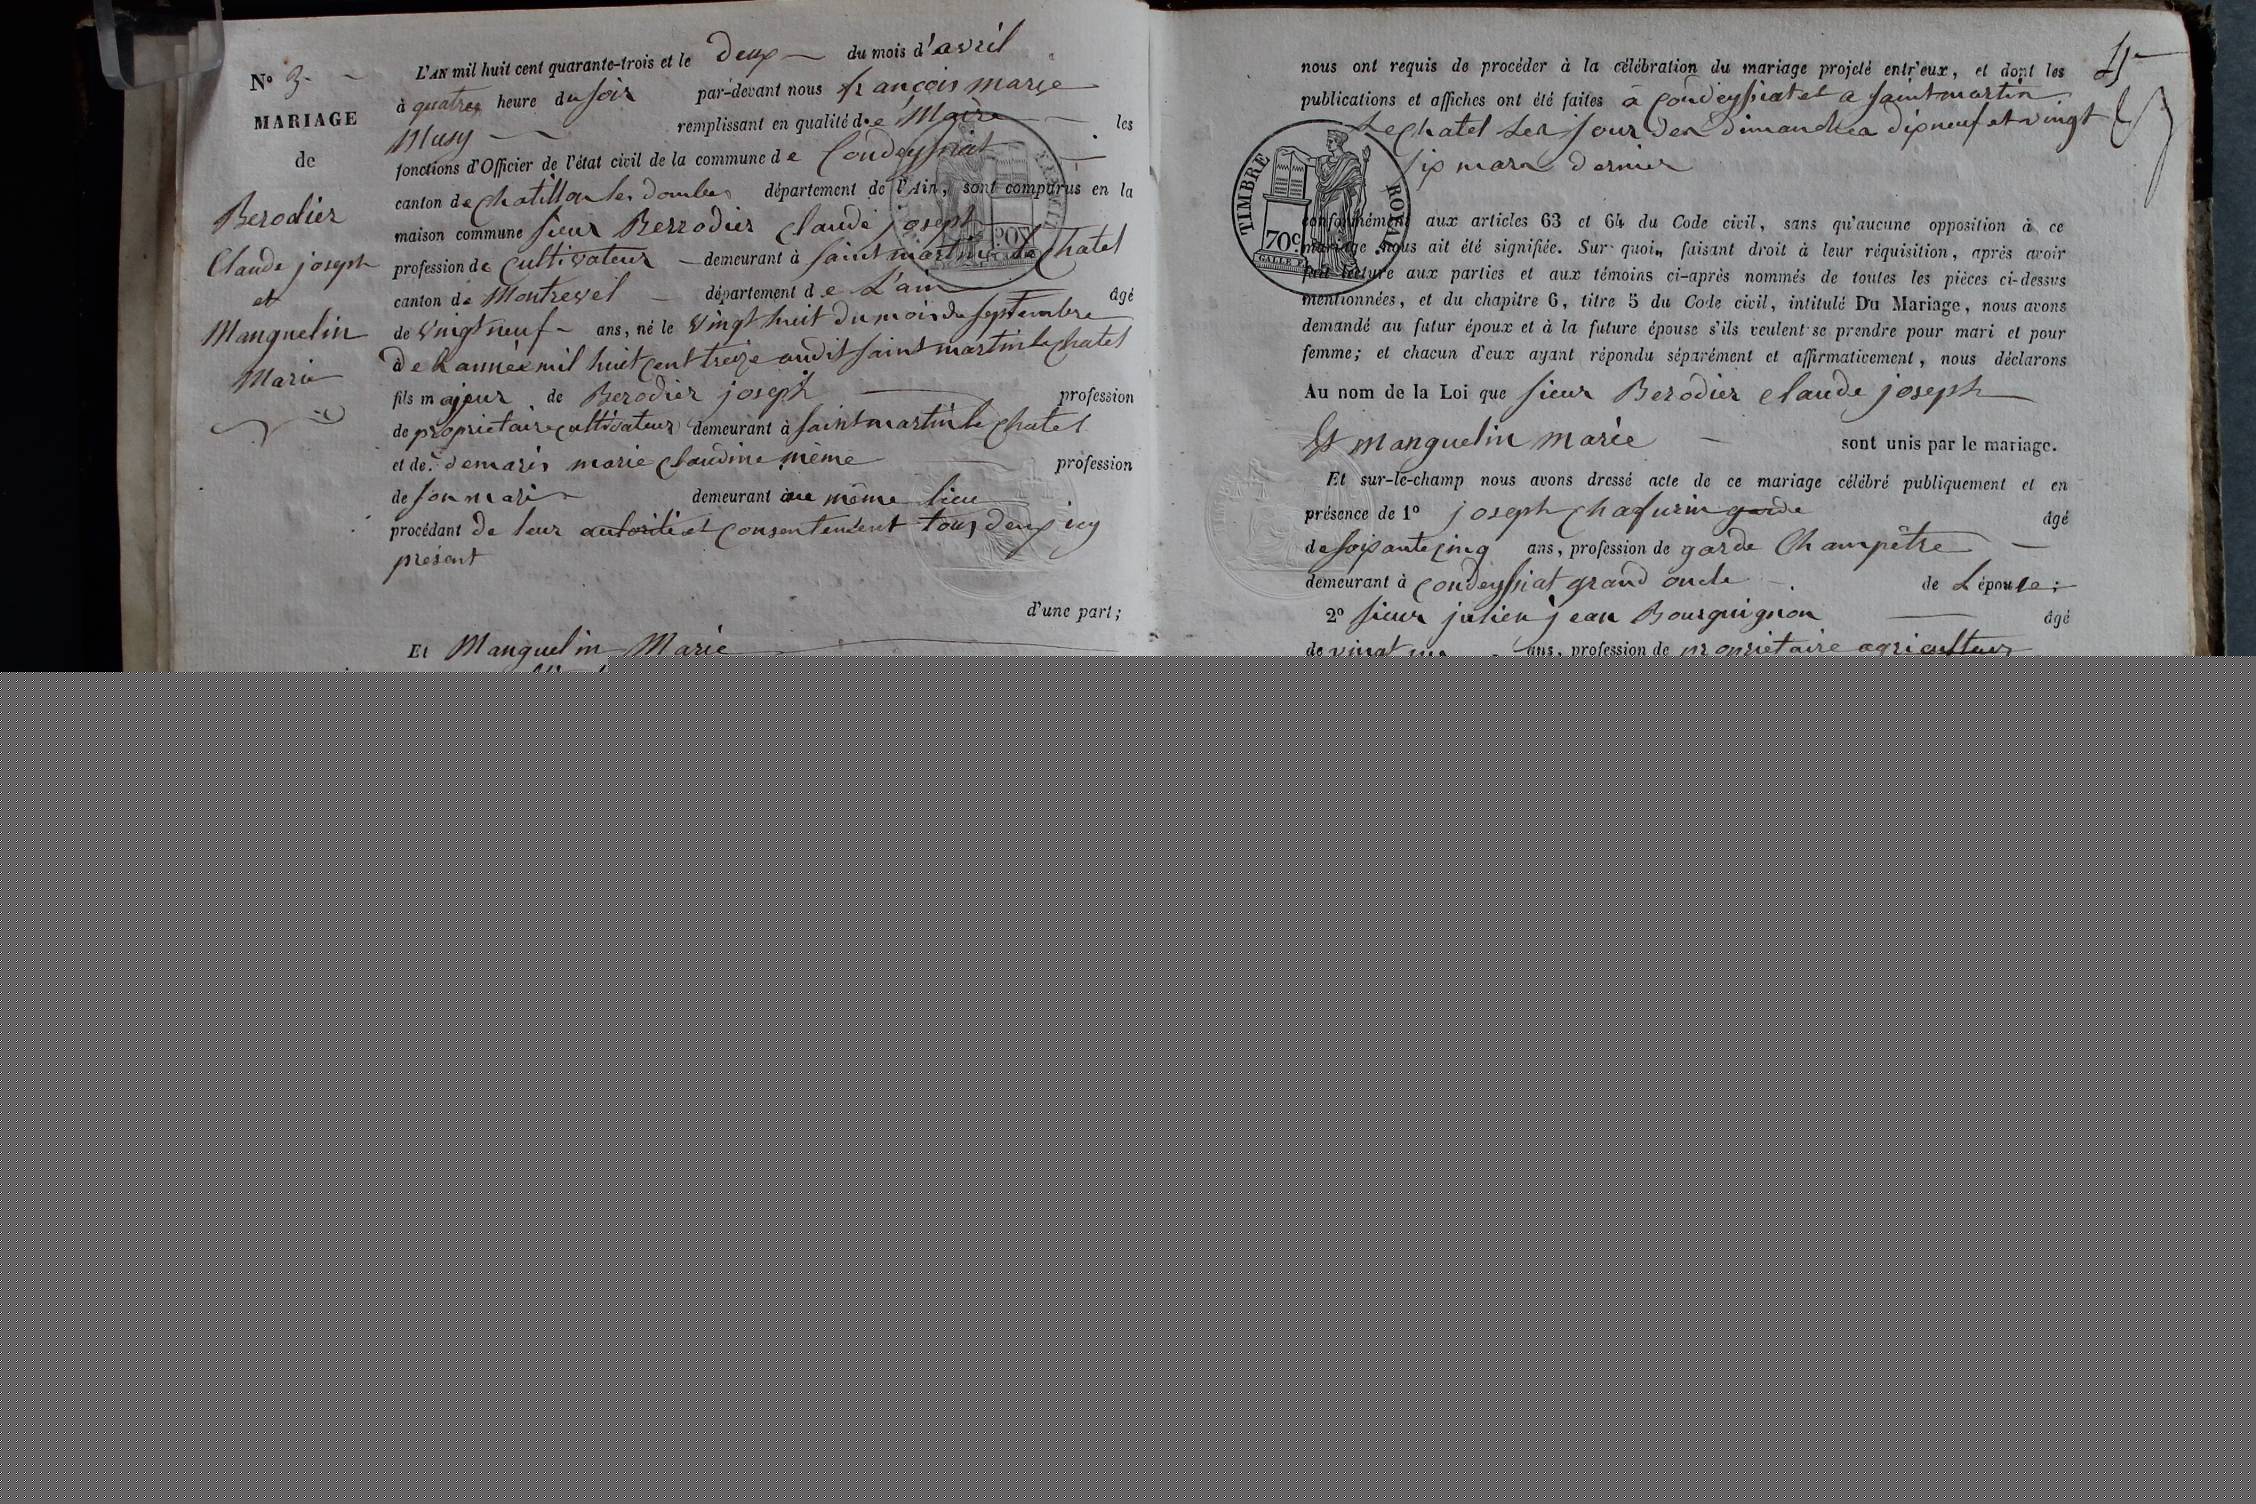 N° 3.
MARIAGE
de
Berodier
Claude joseph
et
Manguelin
Marie
L'AN mil huit cent quarante-trois et le deux du mois d'avril
à quatres heure du soir par-devant nous françois marie
Musy remplissant en qualité de Maire les
fonctions d'Officier de l'état civil de la commune de Condeyssiat
canton de chatillon les dombes département de l'Ain, sont comparus en la
maison commune sieur Berrodier claude joseph
profession de cultivateur demeurant à saint martin le chatel
canton de Montrevel département de L'ain âgé
de vingt neuf ans, né le vingt huit du mois de septembre
de l'année mil huit cent treize audit saint martin le chatel
fils majeur de Berodier joseph profession
de proprietaire cultivateur demeurant à saint martin le chatel
et de demaris marie claudine même profession
de son mari demeurant au même lieu
procédant de leur autorité et consentement tous deux icy
présent
d'une part;
Et Manguelin Marie
nous ont requis de procéder à la célébration du mariage projeté entr'eux, et dont les
publications et affiches ont été faites à Condeyssiat et a saint martin
Le chatel Les jour des dimanches dix neuf et vingt
six mars dernier
TIMBRE ROYAL
70c
conformément aux articles 63 et 64 du Code civil, sans qu'aucune opposition à ce
mariage nous ait été signifiée. Sur quoi, faisant droit à leur réquisition, après avoir
fait lecture aux parties et aux témoins ci-après nommés de toutes les pièces ci-dessus
mentionnées, et du chapitre 6, titre 5 du Code civil, intitulé Du Mariage, nous avons
demandé au futur époux et à la future épouse s'ils veulent se prendre pour mari et pour
femme; et chacun d'eux ayant répondu séparément et affirmativement, nous déclarons
Au nom de la Loi que sieur Berodier claude joseph
Et manguelin marie sont unis par le mariage.
Et sur-le-champ nous avons dressé acte de ce mariage célébré publiquement et en
présence de 1° joseph chafurin garde âgé
de soixante cinq ans, profession de garde Champêtre
demeurant à condeyssiat grand oncle de L'épouse;
2° sieur julien jean Bourguignon âgé
de vingt ans, profession de propriétaire agriculteur